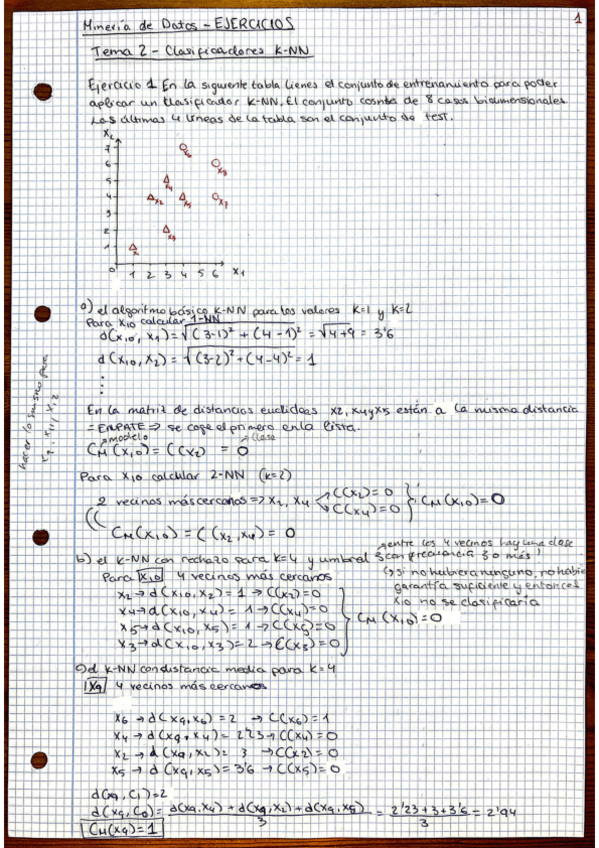 1
Minería de Datos - EJERCICIOS
Tema 2 - Clasificadores K-NN
Ejercicio 1 En la siguiente tabla tienes el conjunto de entrenamiento para poder
aplicar un clasificador K-NN. El conjunto cosnta de 8 casos bidimensionales.
Las últimas 4 líneas de la tabla son el conjunto de test.
X2
7
6
5
4
3
2
1
0
1 2 3 4 5 6 X1
x6
x8
x4
x2
x5
x7
x3
x1
a) el algoritmo básico K-NN para los valores K=1 y K=2
Para X10 calcular 1-NN
d(X10, X1) = √(3-1)² + (4-1)² = √4+9 = 3'6
d(X10, X2) = √(3-2)² + (4-4)² = 1
hacer lo mismo para
x9, x11, x12
En la matriz de distancias euclídeas x2, x4 y x5 están a la misma distancia
= EMPATE ⇒ se coge el primero en la lista.
modelo clase
CM(X10) = C(X2) = 0
Para X10 calcular 2-NN (k=2)
2 vecinos más cercanos => X2, X4
C(X2)=0
C(X4)=0
CM(X10)=0
CM(X10) = C(X2, X4) = 0
b) el K-NN con rechazo para K=4 y umbral 3
entre los 4 vecinos hay una clase
con frecuencia 3 o más!
si no hubiera ninguno, no habría
garantía suficiente y entonces
X10 no se clasificaría
Para X10 4 vecinos más cercanos
X2 → d(X10, X2) = 1 → C(X2)=0
X4 → d(X10, X4) = 1 → C(X4)=0
X5 → d(X10, X5) = 1 → C(X5)=0
X3 → d(X10, X3) = 2 → C(X3)=0
CM(X10)=0
c) el K-NN con distancia media para K=4
X9 4 vecinos más cercanos
X6 → d(X9, X6) = 2 → C(X6)=1
X4 → d(X9, X4) = 2'23 → C(X4)=0
X2 → d(X9, X2) = 3 → C(X2)=0
X5 → d(X9, X5) = 3'6 → C(X5)=0
d(X9, C1)=2
d(X9, C0) = d(X9,X4) + d(X9,X2) + d(X9,X5) / 3 = 2'23+3+3'6 / 3 = 2'94
CM(X9)=1